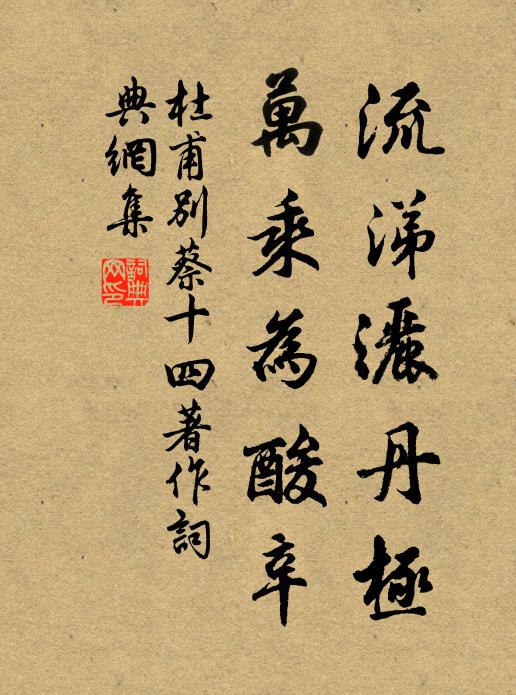 流涕灑丹極
萬乘為酸辛
杜甫別蔡十四著作詞
典網集
詞典
网印